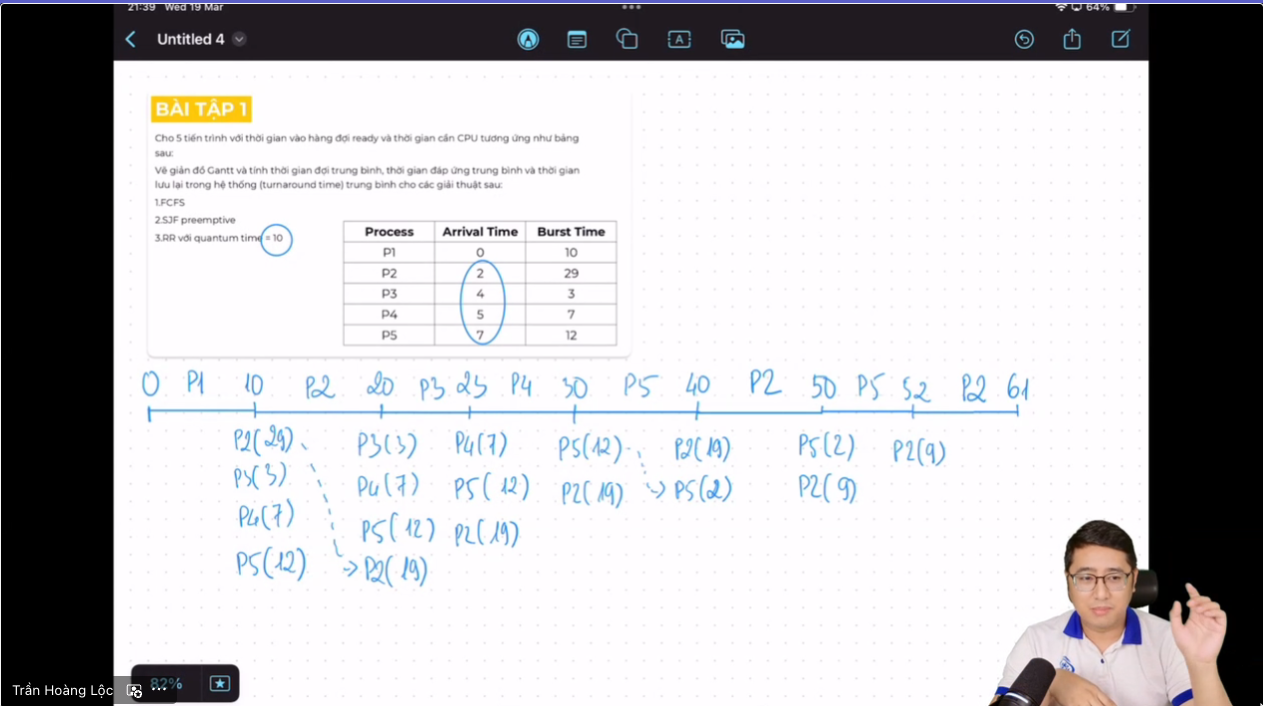 21:39 Wed 19 Mar
64%
Untitled 4
A
BÀI TẬP 1
Cho 5 tiến trình với thời gian vào hàng đợi ready và thời gian cần CPU tương ứng như bảng
sau:
Vẽ giản đồ Gantt và tính thời gian đợi trung bình, thời gian đáp ứng trung bình và thời gian
lưu lại trong hệ thống (turnaround time) trung bình cho các giải thuật sau:
1.FCFS
2.SJF preemptive
3.RR với quantum time = 10
Process Arrival Time Burst Time
P1 0 10
P2 2 29
P3 4 3
P4 5 7
P5 7 12
0 P1 10 P2 20 P3 23 P4 30 P5 40 P2 50 P5 52 P2 61
P2(29) P3(3) P4(7) P5(12) P2(19) P5(2) P2(9)
P3(3) P4(7) P5(12) P2(19) P5(2) P2(9)
P4(7) P5(12) P2(19)
P5(12) P2(19)
82%
Trần Hoàng Lộc